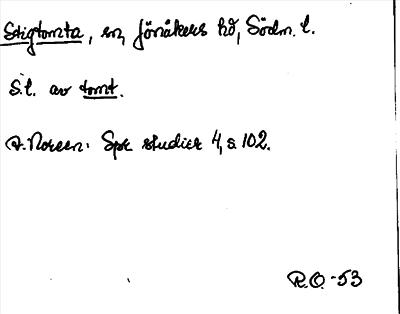 Stigtomta, sn, Jönåkers hd, Södm. l.
S.l. av tomt.
A. Noreen: Spr. studier 4, s. 102.
R.O. -53